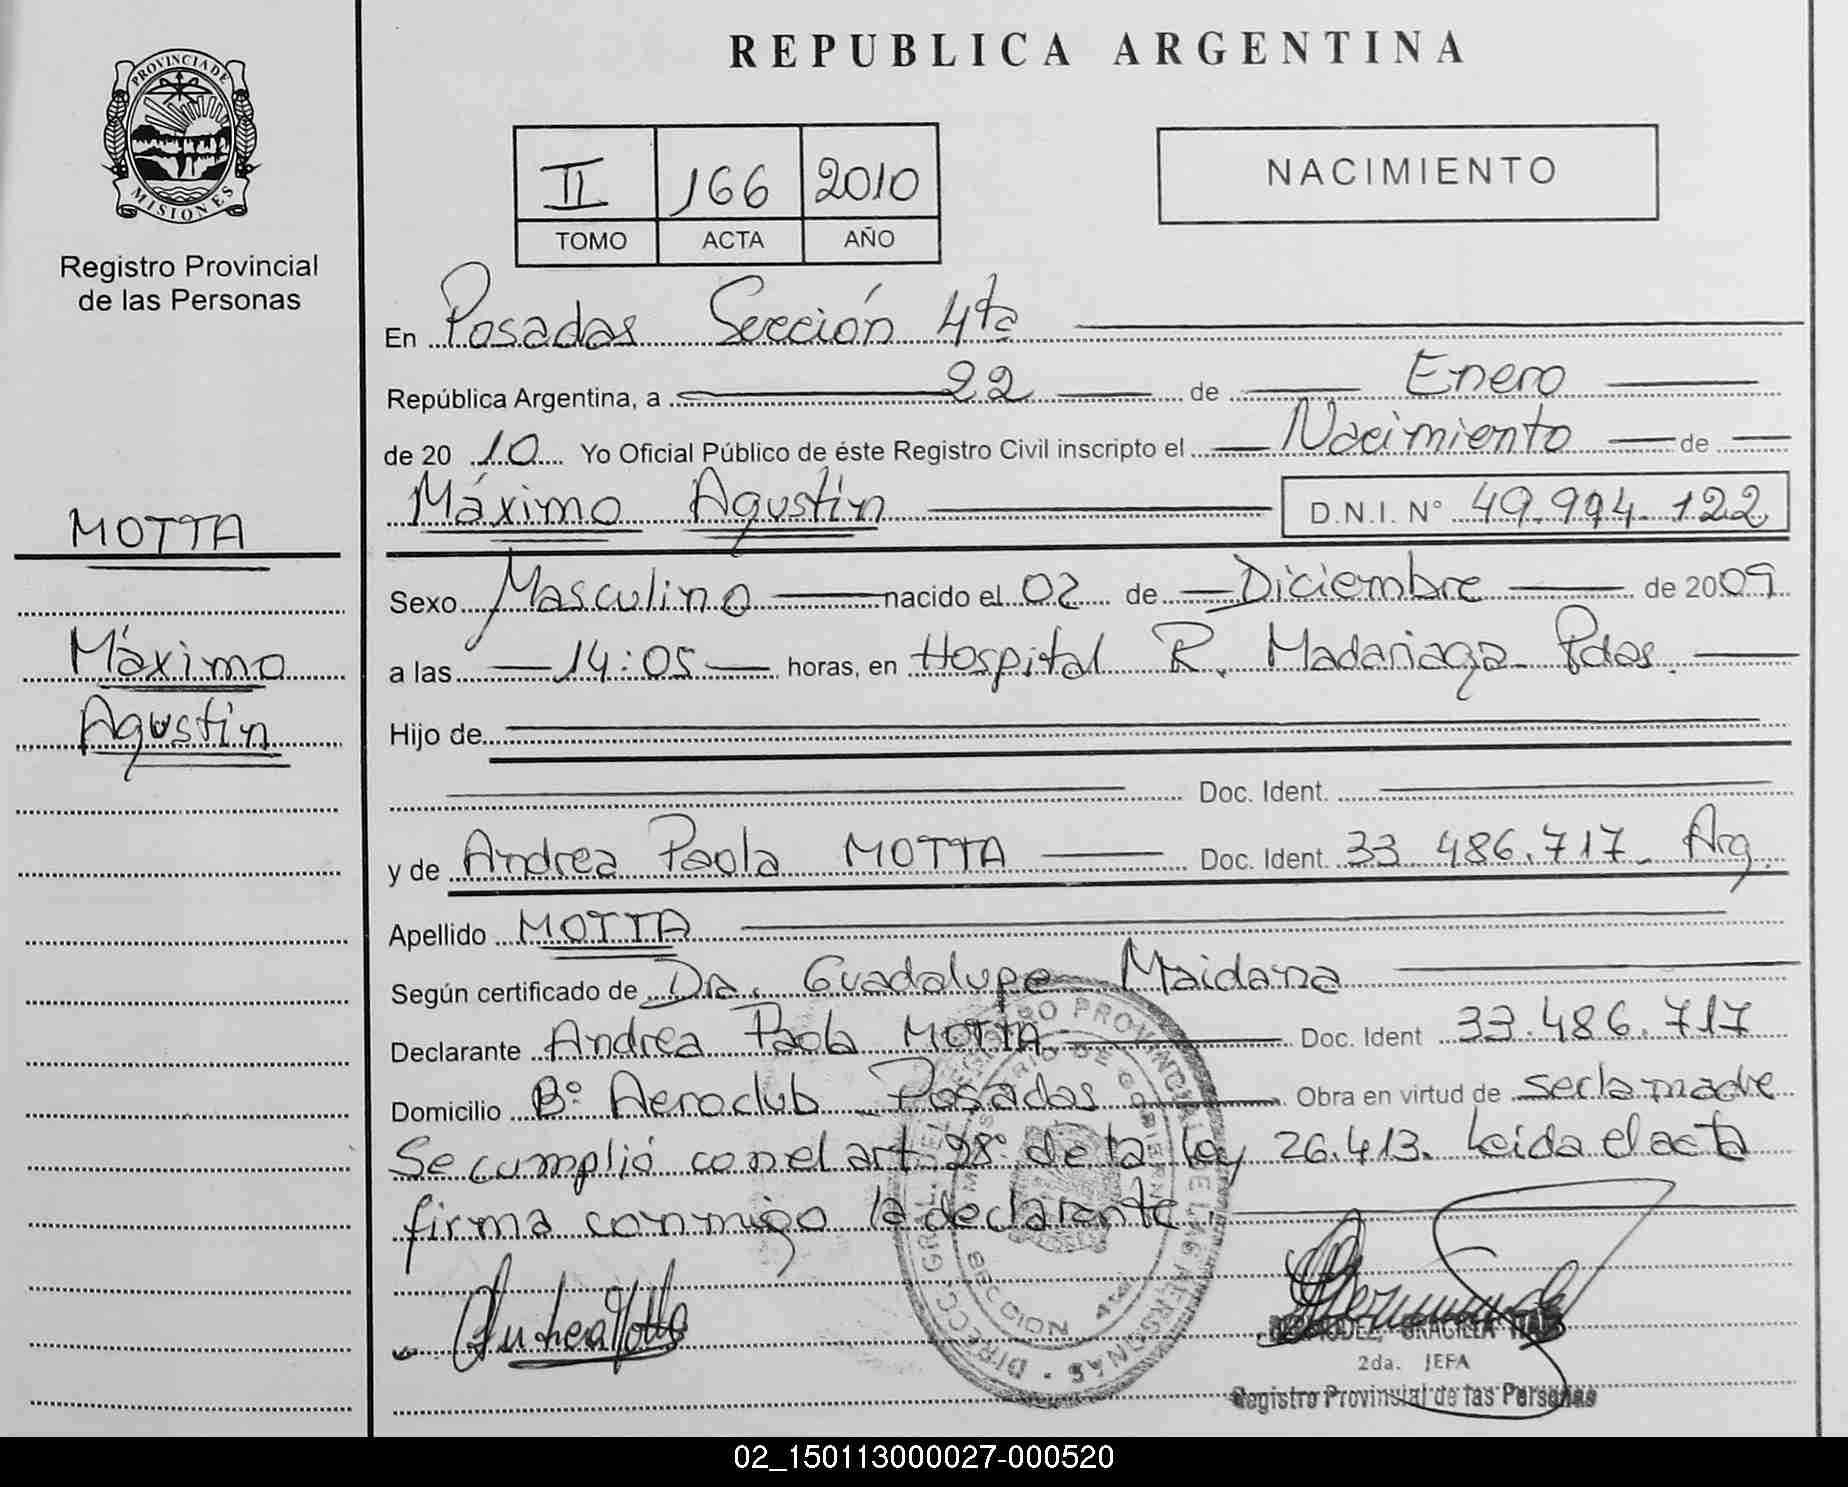 PROVINCIA DE
MISIONES
Registro Provincial
de las Personas
MOTTA
Máximo
Agustín
REPUBLICA ARGENTINA
II 166 2010
TOMO ACTA AÑO
NACIMIENTO
En Posadas Sección 4ta
República Argentina, a 22 de Enero
de 2010 Yo Oficial Público de éste Registro Civil inscripto el Nacimiento de
Máximo Agustín D.N.I. N° 49.994.122
Sexo Masculino nacido el 02 de Diciembre de 2009
a las 14:05 horas, en Hospital R. Madariaga Pdas.
Hijo de
Doc. Ident.
y de Andrea Paola MOTTA Doc. Ident. 33 486.717. Arg.
Apellido MOTTA
Según certificado de Dra. Guadalupe Maidana
Declarante Andrea Paola MOTTA Doc. Ident 33.486.717
Domicilio B° Aeroclub Posadas Obra en virtud de ser la madre
Se cumplió con el art 28° de la ley 26.413. Leida el acta
firma conmigo la declarante
Andrea Motta
GRACIELA
2da. JEFA
Registro Provincial de las Personas
02_150113000027-000520